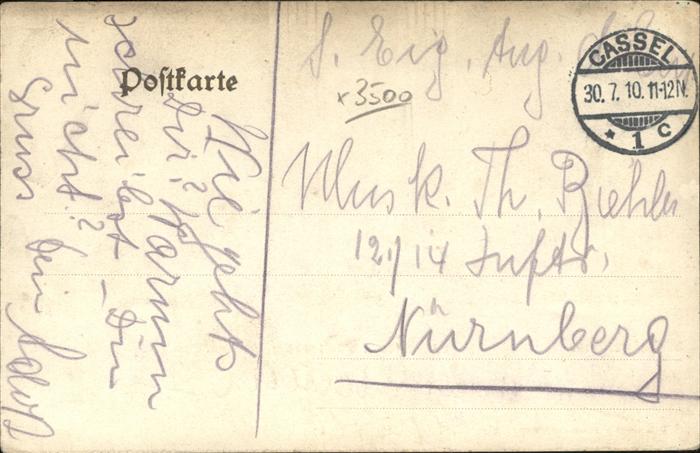 Postkarte
Wie gehts
Dir? Warum
schreibst Du
nicht?
Gruss Dein Adolf
S. Eig. Ang.
x3500
CASSEL
30. 7. 10. 11-12N.
* 1 c
Musk. Th.
12/14 Inftr.
Nürnberg